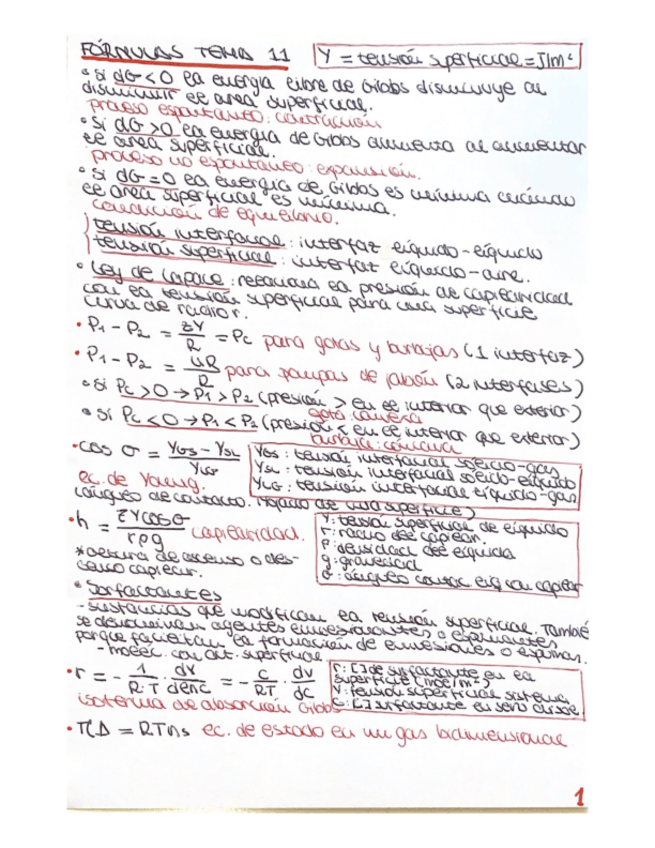 FÓRMULAS TEMA 11
γ = tensión superficial = J/m²
• Si dG < 0 la energía libre de Gibbs disminuye al
disminuir el área superficial.
proceso espontáneo: contracción
• Si dG > 0 la energía de Gibbs aumenta al aumentar
el área superficial.
proceso no espontáneo: expansión.
• Si dG = 0 la energía de Gibbs es mínima cuando
el área superficial es mínima.
condición de equilibrio.
tensión interfacial: interfaz líquido-líquido
tensión superficial: interfaz líquido-aire.
• Ley de Laplace: relaciona la presión de capilaridad
con la tensión superficial para una superficie
curva de radio r.
• P₁ - P₂ = 2γ/R = Pc para gotas y burbujas (1 interfaz)
• P₁ - P₂ = 4γ/R para pompas de jabón (2 interfases)
• Si Pc > 0 → P₁ > P₂ (presión > en el interior que exterior)
gota convexa
• Si Pc < 0 → P₁ < P₂ (presión < en el interior que exterior)
burbuja: cóncava
• cos σ = γGS - γSL / γLG
γGS: tensión interfacial sólido-gas
γSL: tensión interfacial sólido-líquido
γLG: tensión interfacial líquido-gas
ec. de Young.
(ángulo de contacto. Mojado de una superficie)
• h = 2γcosσ / rρg capilaridad.
*altura de ascenso o des-
censo capilar.
γ: tensión superficial de líquido
r: radio del capilar.
ρ: densidad del líquido
g: gravedad
σ: ángulo contac liq con capilar
• Surfactantes
- sustancias que modifican la tensión superficial. También
se denominan agentes emulsionantes o espumantes
porque facilitan la formación de emulsiones o espumas.
- molec. con act. superficial
• Γ = - 1/R·T · dγ/dlnc = - c/RT · dγ/dc
Γ: [ ] de surfactante en la
superficie (mol/m²)
γ: tensión superficial sistema
C: [ ] surfactante en seno
isoterma de absorción Gibbs
• πA = RTns ec. de estado en un gas bidimensional
1